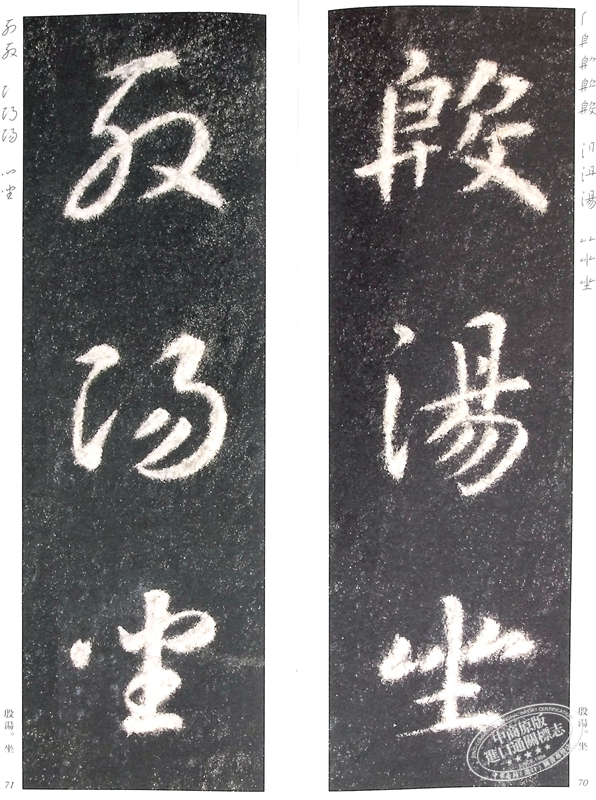 殷
湯
坐
殷湯。坐
70
殷
湯
坐
殷湯。坐
71
中商原版
進口通關標志